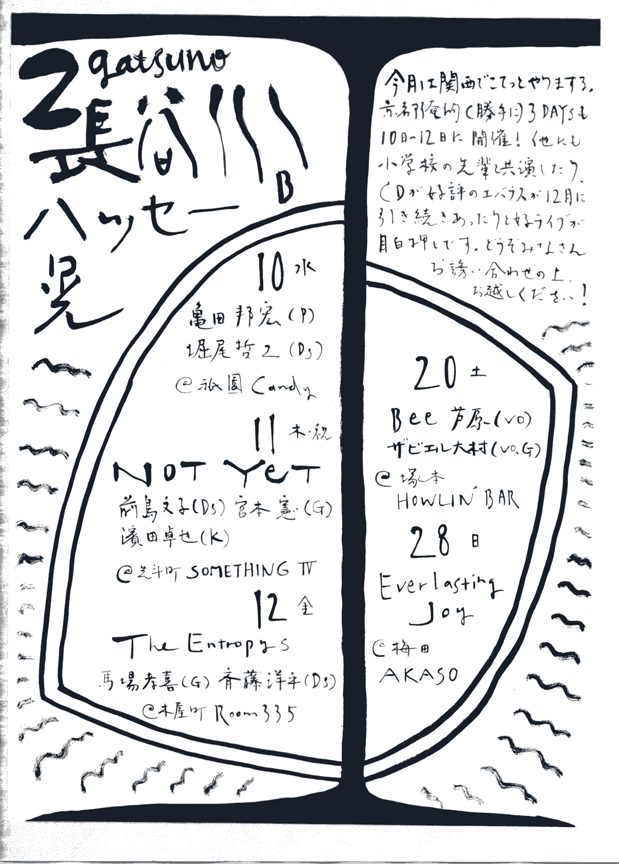 2gatsuno
長谷川
B
ハッセー
晃
今月は関西でこてっとやりまする。
京都俺的(勝手に)3DAYSも
10日~12日に開催!他にも
小学校の先輩と共演したり、
CDが好評のエバラスが12月に
引き続きあったりと好ライブが
目白押しです。どうぞみなさん
お誘い合わせの上、
お越しください!
10 水
亀田邦宏(P)
堀尾哲二(Ds)
@祇園 Candy
11 木・祝
NOT YeT
前島文子(Ds) 宮本憲(G)
濱田卓也(K)
@先斗町 SOMETHING IV
12 金
The Entropys
馬場孝喜(G) 斉藤洋平(Ds)
@木屋町 Room335
20 土
Bee 芦原(VO)
ザビエル大村(VO.G)
@塚本
HOWLIN' BAR
28 日
Everlasting
Joy
@梅田
AKASO